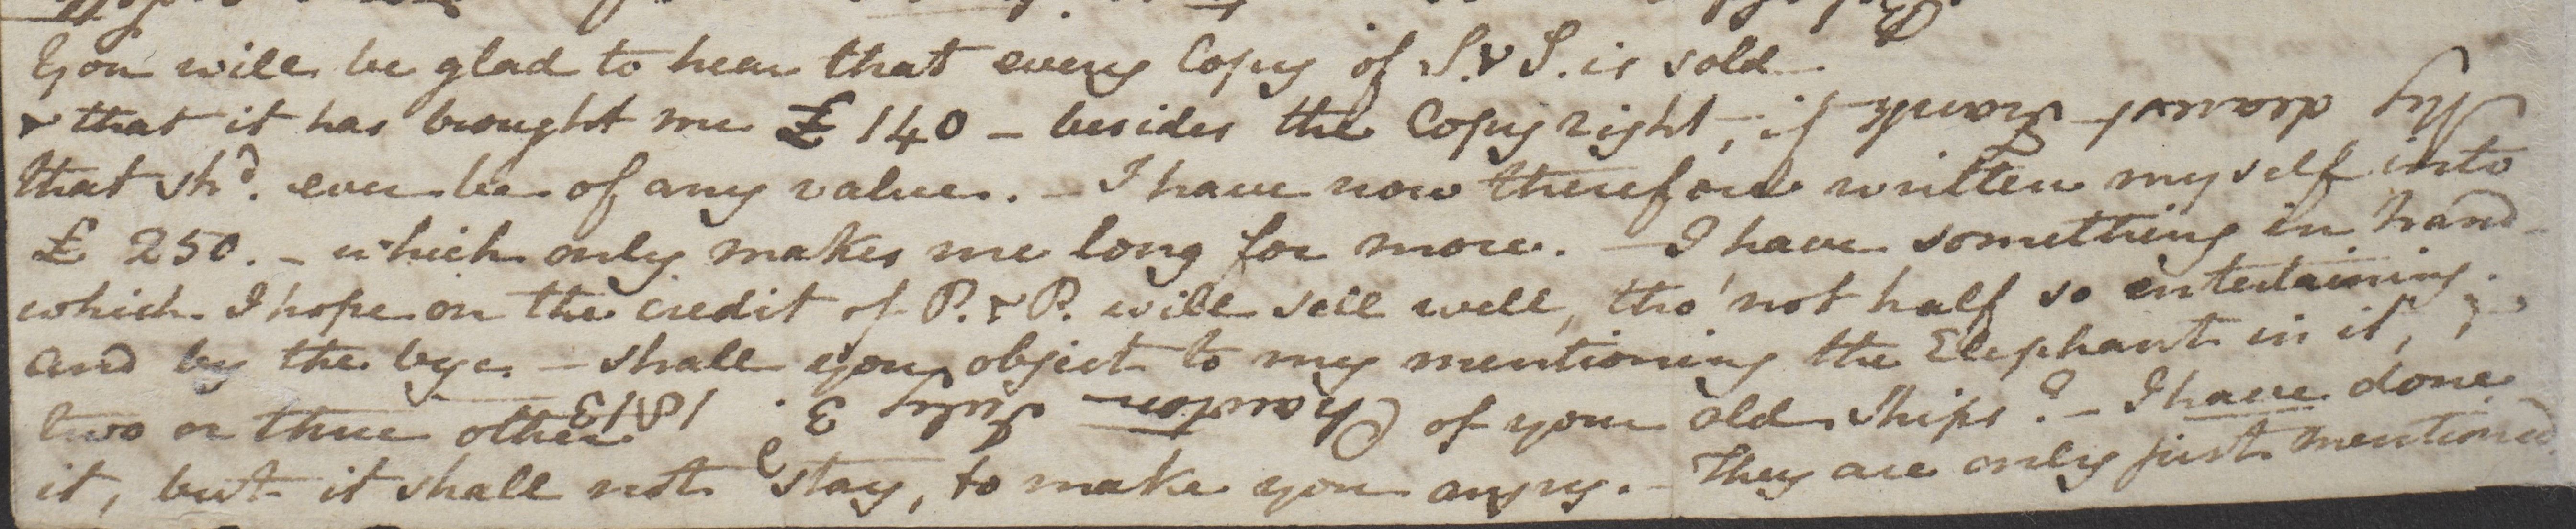 You will be glad to hear that every Copy of S. & S. is sold
& that it has brought me £ 140 - besides the Copyright, if
that shd. ever be of any value. - I have now therefore written myself into
£ 250. - which only makes me long for more. - I have something in hand -
which I hope on the credit of P. & P. will sell well, tho' not half so entertaining.
And by the bye - shall you object to my mentioning the Elephant in it, &
two or three other of your old Ships? - I have done
it, but it shall not stay, to make you angry. - They are only just mentioned.
Chawton July 3. 1813
My dearest Frank